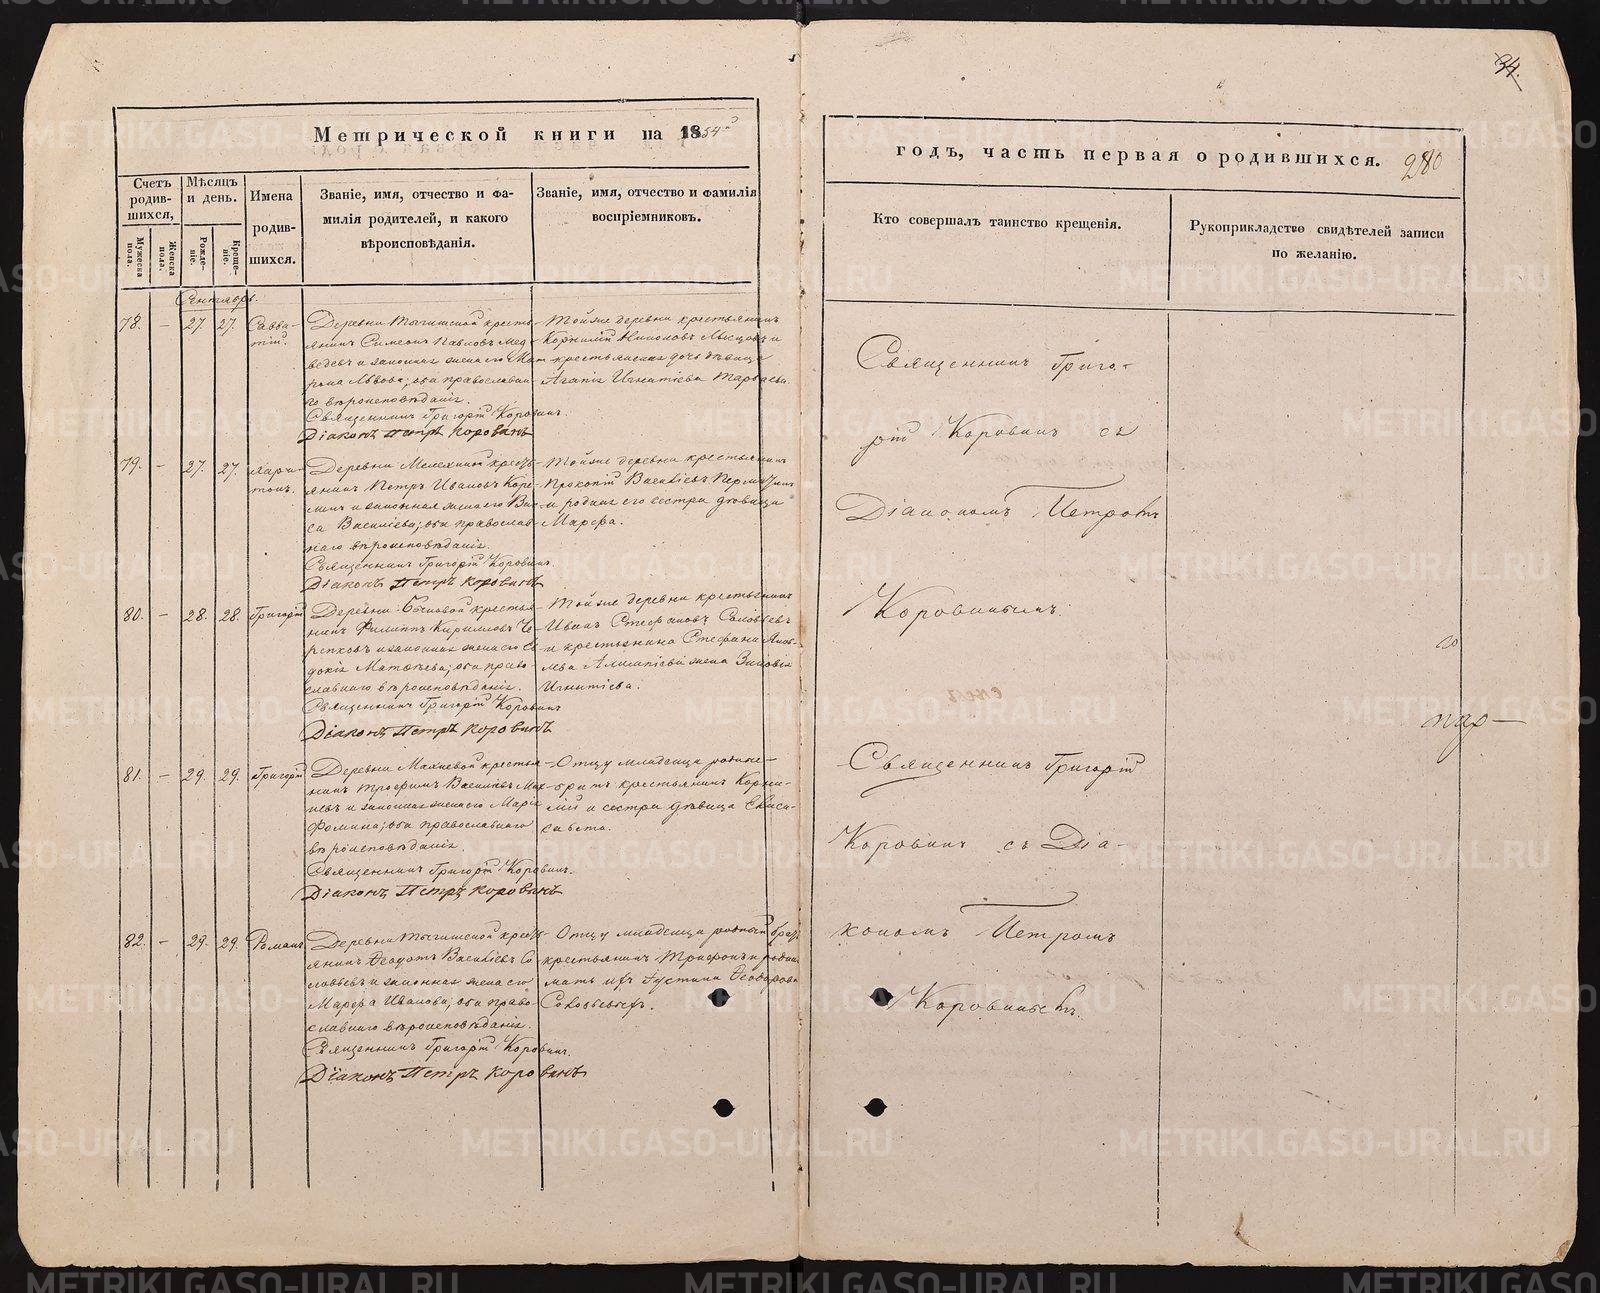 34.
Метрической книги на 1854й
годъ, часть первая о родившихся. 280
Счетъ родив-шихся,
Мужеска пола.
Женска пола.
Мѣсяцъ и день.
Рожде-ніе.
Креще-ніе.
Имена
родив-
шихся.
Званіе, имя, отчество и фа-
милія родителей, и какого
вѣроисповѣданія.
Званіе, имя, отчество и фамилія
воспріемниковъ.
Кто совершалъ таинство крещенія.
Рукоприкладство свидѣтелей записи
по желанію.
Сентябрь.
78. – 27. 27. Савва-
тій.
Деревни Тыгишской кресть-
янинъ Симеонъ Павловъ Мед-
ведевъ и законная жена его Мат-
рона Львова; оба православна-
го вѣроисповѣданія.
Священникъ Григорій Коровинъ.
Діаконъ Петръ Коровинъ
Тойже деревни крестьянинъ
Корнилій
крестьянская дочь дѣвица
Агапія Игнатіева
79. – 27. 27. Хари-
тонъ.
Деревни крестъ-
янинъ Петръ Ивановъ Коре-
линъ и законная жена его Ва-
са Василіева; оба православ-
наго вѣроисповѣданія.
Священникъ Григорій Коровинъ
Діаконъ Петръ Коровинъ
Тойже деревни крестьянинъ
Прокопій Василіевъ
и родная его сестра дѣвица
Марфа.
80. – 28. 28. Григорій
Деревни Быковой крестья-
нинъ Филиппъ Кирилловъ Че-
репковъ и законная жена его Ев-
докія Матвѣева; оба право-
славнаго вѣроисповѣданія.
Священникъ Григорій Коровинъ
Діаконъ Петръ Коровинъ
Тойже деревни крестьянинъ
Иванъ Стефановъ Соловьевъ
и крестьянина Стефана Яков-
лева жена Зиновія
Игнатіева.
81. – 29. 29. Григорій
Деревни Махневой крестья-
нинъ Трофимъ Василіевъ Мах-
невъ и законная жена его Марія
Фомина; оба православнаго
вѣроисповѣданія.
Священникъ Григорій Коровинъ.
Діаконъ Петръ Коровинъ
Отцу младенца родные –
братъ крестьянинъ Корни-
лій и сестра дѣвица Елиса-
вета.
82. – 29. 29. Романъ.
Деревни Тыгишской кресть-
янинъ Ѳеодотъ Василіевъ Со-
ловьевъ и законная жена его
Марфа Иванова; оба право-
славнаго вѣроисповѣданія.
Священникъ Григорій Коровинъ.
Діаконъ Петръ Коровинъ
Отцу младенца родный братъ
крестьянинъ Трифонъ и родная
мать ихъ Іустина Ѳеодорова
Соловьевыхъ.
Священникъ Григо-
рій Коровинъ съ
Діакономъ Петромъ
Коровинымъ.
Священникъ Григорій
Коровинъ съ Діа-
кономъ Петромъ
Коровинымъ.
METRIKI.GASO-URAL.RU